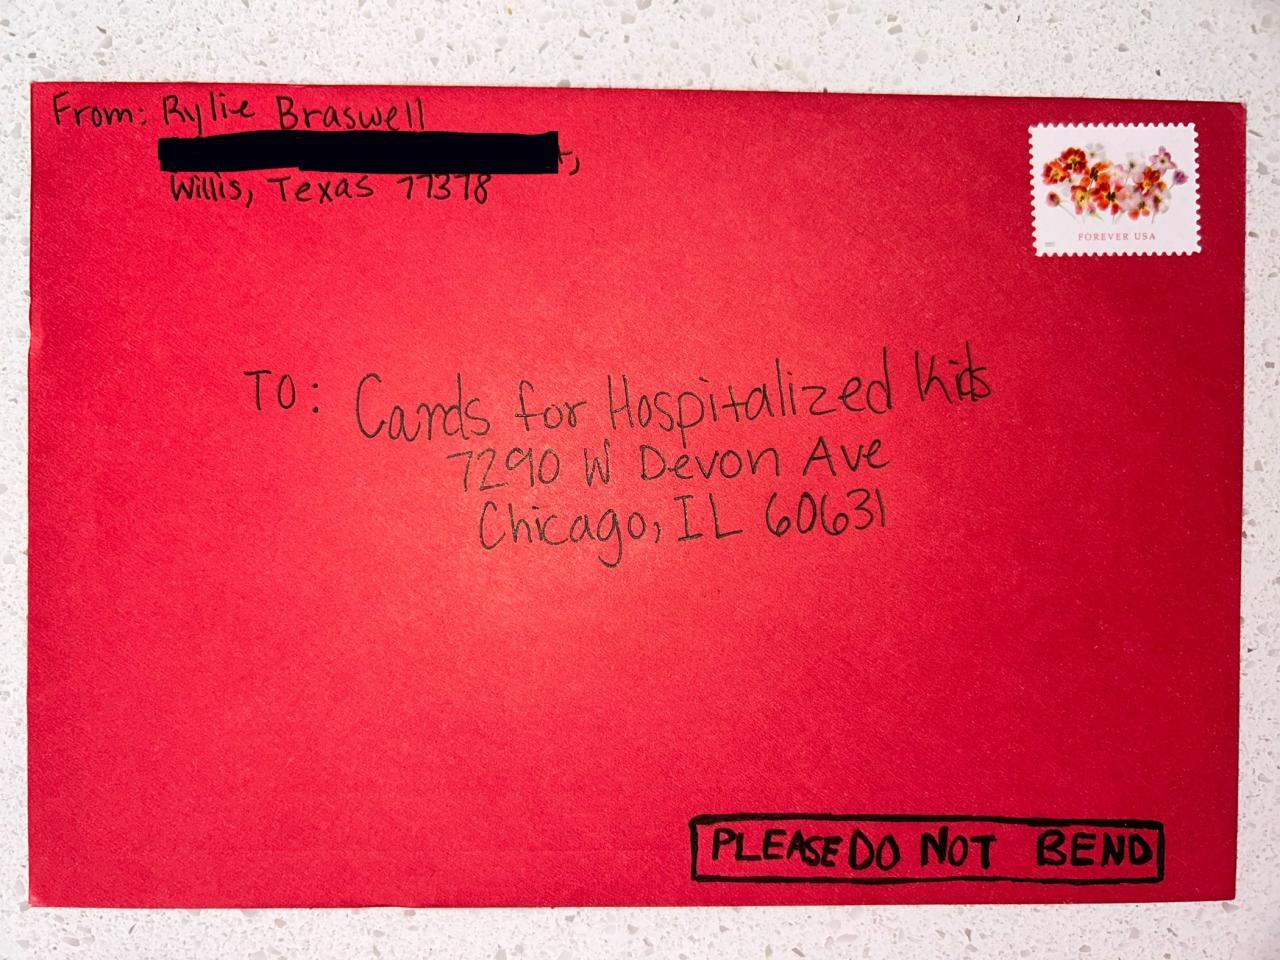 From: Rylie Braswell
,
Willis, Texas 77378
FOREVER USA
TO: Cards for Hospitalized Kids
7290 W Devon Ave
Chicago, IL 60631
PLEASE DO NOT BEND